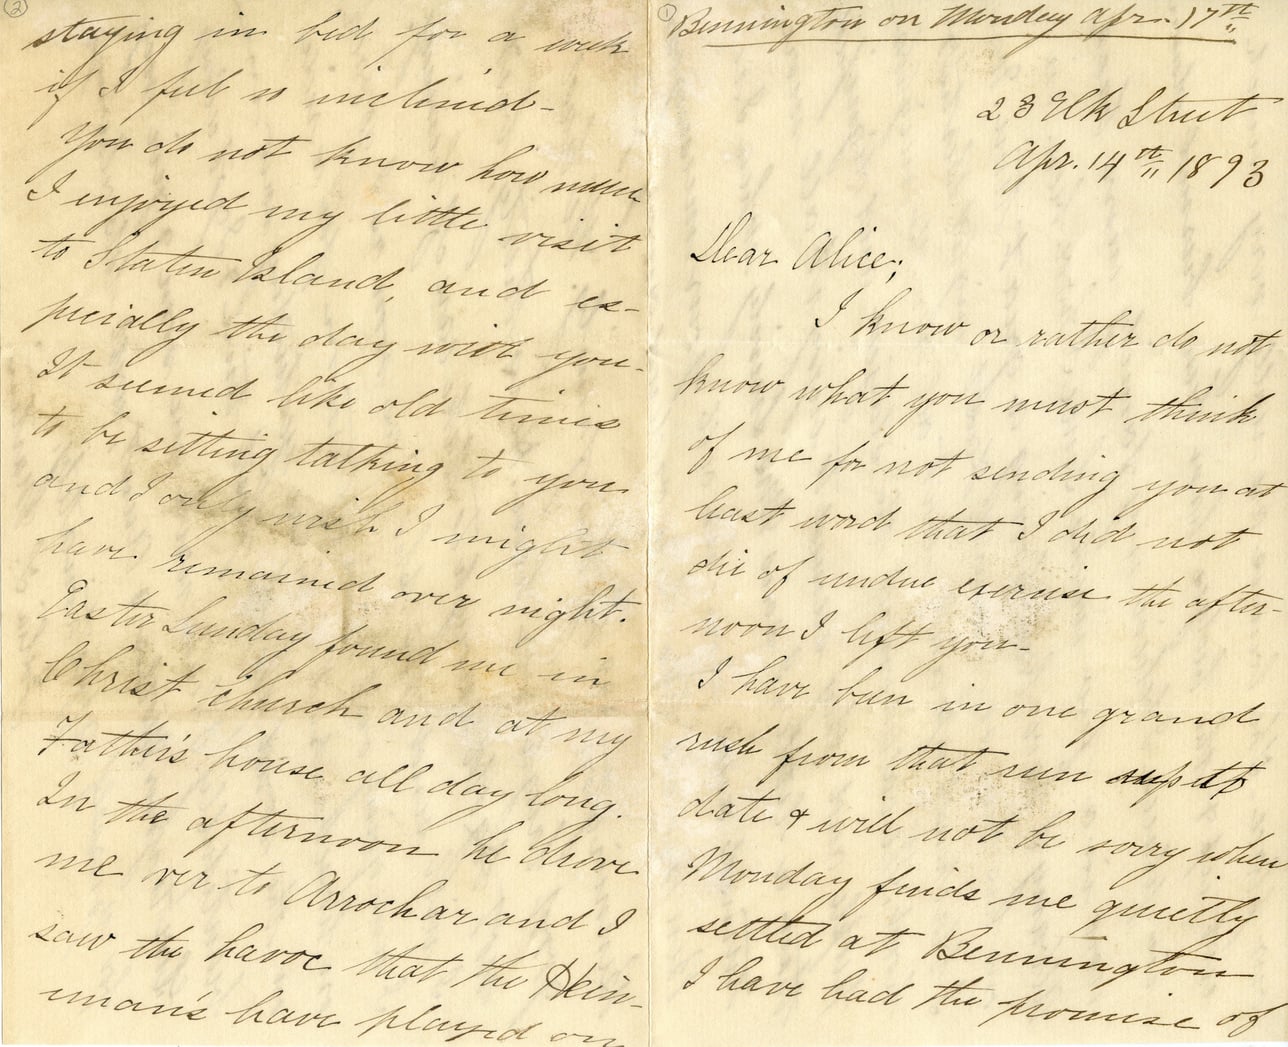 ①
Bennington on Monday Apr. 17th
23 Elk Street
Apr. 14th 1893
Dear Alice;
I know or rather do not
know what you must think
of me for not sending you at
least word that I did not
die of undue exercise the after-
noon I left you-
I have been in one grand
rush from that run up to
date & will not be sorry when
Monday finds me quietly
settled at Bennington
I have had the promise of
②
staying in bed for a week
if I feel so inclined-
You do not know how much
I enjoyed my little visit
to Staten Island, and es-
pecially the day with you-
It seemed like old times
to be sitting talking to you
and I only wish I might
have remained over night.
Easter Sunday found me in
Christ church and at my
Father's house all day long.
In the afternoon he drove
me ver to Arrochar and I
saw the havoc that the Hein-
eman's have played on